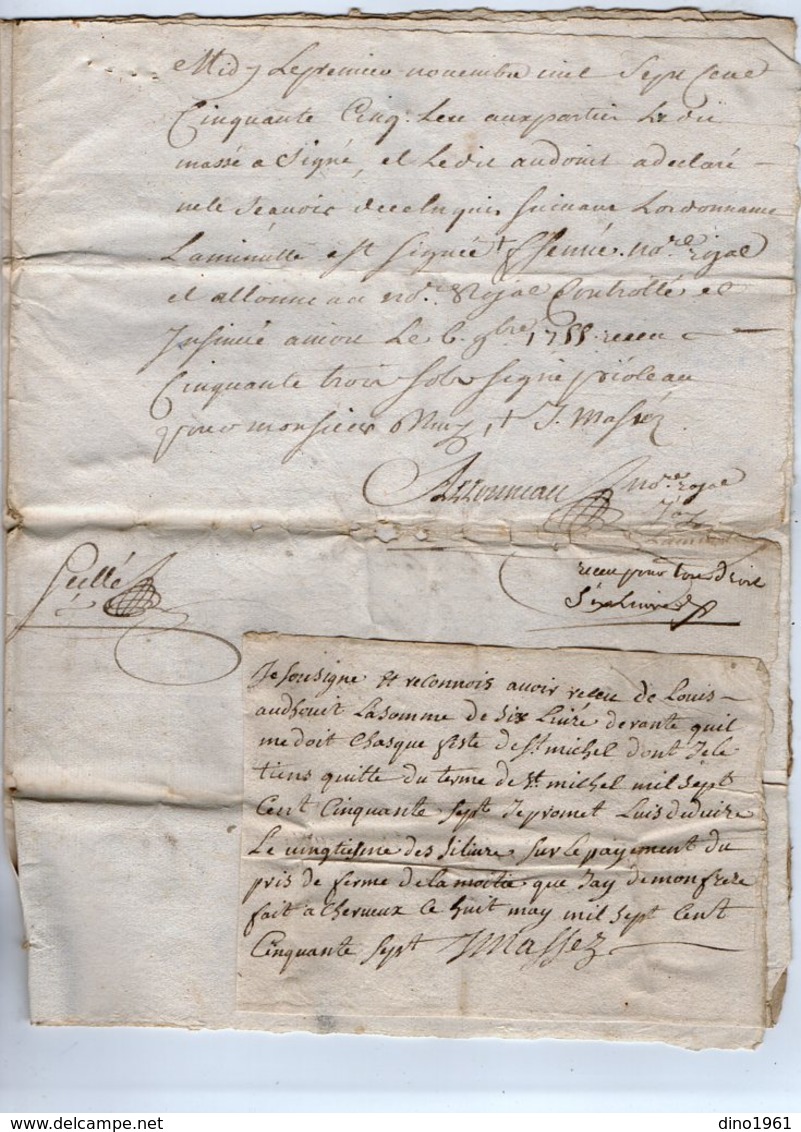 Midy Le premier novembre mil Sept Cent
Cinquante Cinq. Leu aux partier Ledit
massé a Signé, et Ledit audouit a declaré
ne le Scavoir de ce Enquis Suivant Lordonnance
La minutte est Signée † not.re Royal
et allonneau no.re Royal Controllé et
Insinué a niort Le 6. 9bre. 1755. receu
Cinquante trois Sols Signé prioleau
pour monsieur † J. Masséz
Allonneau no.re royal
Jay
La minutte
Scellé
receu pour tous droit
Six Livres
Je sousigne et reconnois avoir receu de Louis
audhouit La somme de six Livre de rante quil
me doit Chasque feste de St. michel dont Je le
tiens quitte du terme de St. michel mil sept
Cent Cinquante sept Je promet Luis deduire
Le vingtiesme des si livre sur le payement du
pris de ferme de la moitie que Jay de mon frere
fait a Cherveux Ce huit may mil sept Cent
Cinquante sept JMassez
dino1961